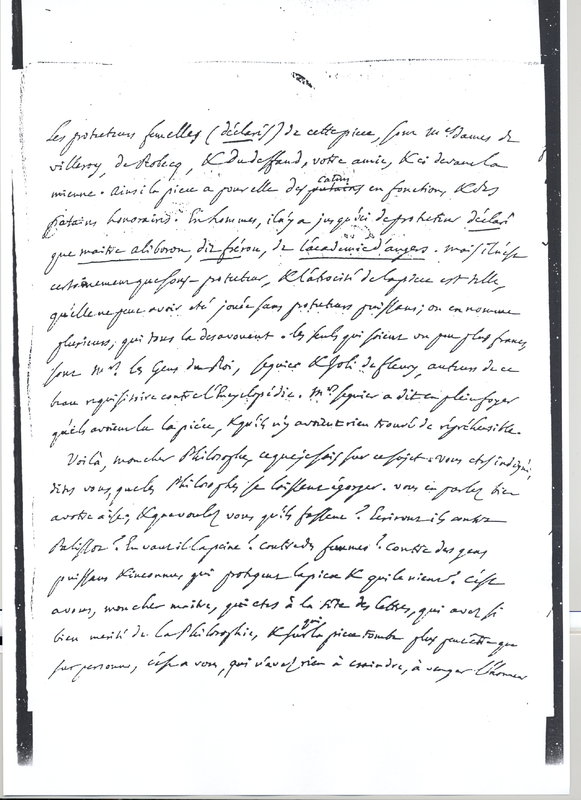 Les protecteurs femelles (déclarés) de cette piece, sont Mesdames de
villeroy, de Robecq, & Du deffand, votre amie, & ci devant la
mienne. Ainsi la piece a pour elle des putains catins en fonction, & des
putains honoraires. En hommes, il n'y a jusqu'ici de protecteur déclaré
que maitre aliboron, dit fréron, de l'académie d'angers. mais il n'est
certainement que sous-protecteur, & l'atrocité de la piece est telle,
qu'elle ne peut avoir eté jouée sans protecteurs puissans; on en nomme
plusieurs, qui tous la desavouent. les seuls qui soient un peu plus francs
sont Mrs. les Gens du Roi, Seguier & Joli de fleury, auteurs de ce
beau requisitoire contre l'Encyclopédie. Mr Seguier a dit en plein foyer
qu'ils avoient lu la piéce, & qu'ils n'y avoient rien trouvé de répréhensible.
Voilà, mon cher Philosophe, ce que je sais sur ce sujet. vous etes indigné,
dites vous, que les Philosophes se laissent égorger. vous en parlez bien
a votre aise; & que voulez vous qu'ils fassent? Ecriront ils contre
Palissot? En vaut il la peine? contre des femmes? contre des gens
puissans & inconnus, qui protegent la piece & qui le nient? C'est
a vous, mon cher maitre, qui etes à la tête des lettres, qui avez si
bien merité de la Philosophie, & sur qui la piece tombe plus peut etre que
sur personne, c'est a vous, qui n'avez rien à craindre, à venger l'honneur